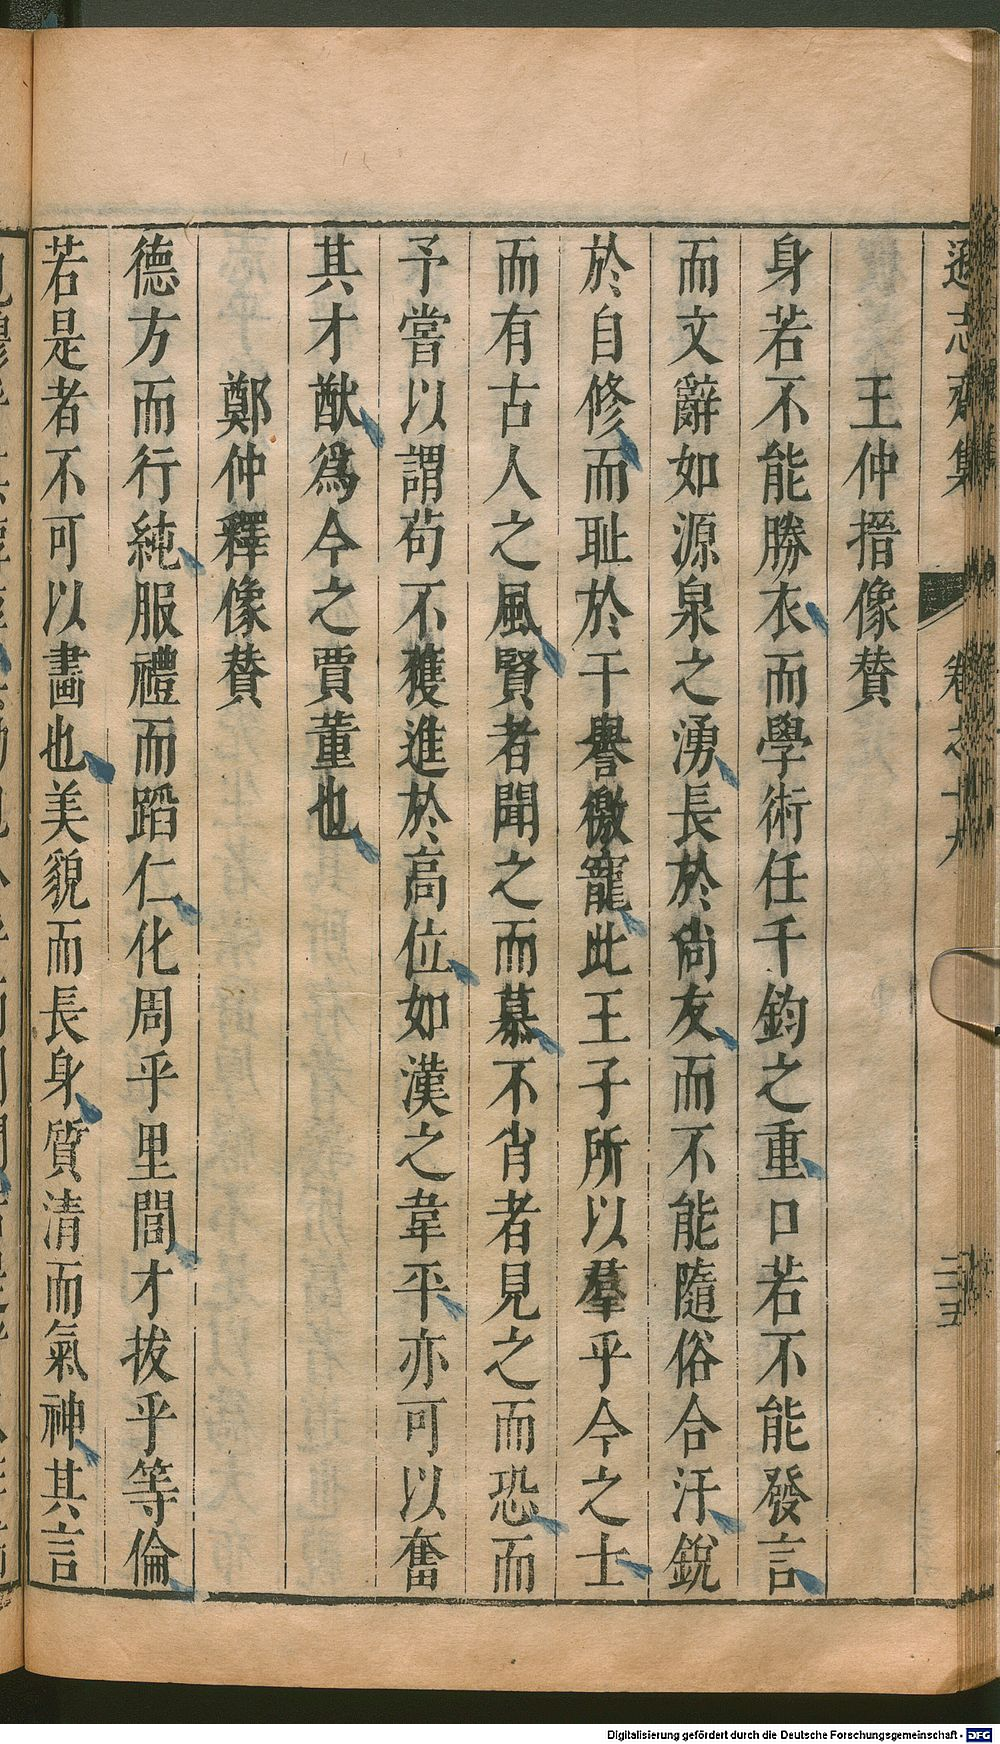 遜志齋集　卷之十九　二三五
王仲搢像贊
身若不能勝衣而學術任千鈞之重口若不能發言
而文辭如源泉之湧長於尚友而不能隨俗合汙銳
於自修而耻於干譽徼寵此王子所以羣乎今之士
而有古人之風賢者聞之而慕不肖者見之而恐而
予嘗以謂苟不獲進於高位如漢之韋平亦可以奮
其才猷爲今之賈董也
鄭仲釋像贊
德方而行純服禮而蹈仁化周乎里閭才拔乎等倫
若是者不可以畫也美貌而長身質清而氣神其言
Digitalisierung gefördert durch die Deutsche Forschungsgemeinschaft - DFG